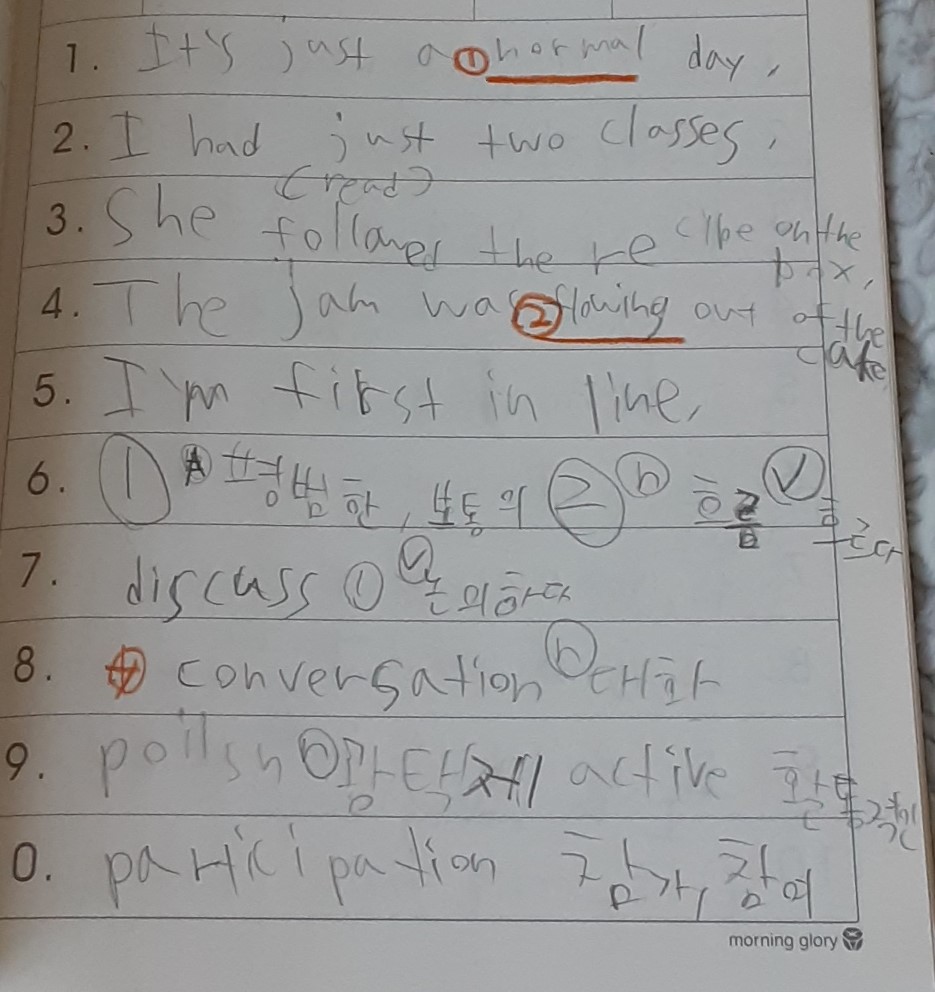 1. It's just a ① normal day.
2. I had just two classes.
(read)
3. She followed the recipe on the box.
4. The jam was ② flowing out of the cake
5. I'm first in line.
6. ① A 평범한, 보통의 ② n 흐름 v 흐르다
7. discuss ① v 논의하다
8. conversation n 대화
9. polish n 광택제 active 활동적인
0. participation 참가, 참여
morning glory